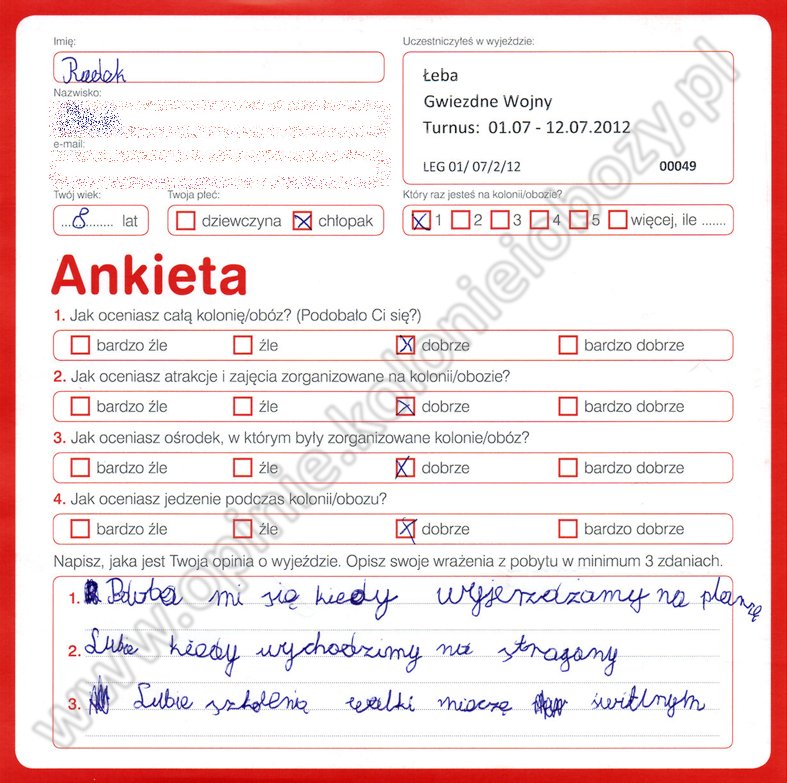 Imię:
Radek
Nazwisko:
e-mail:
Twój wiek:
8 lat
Twoja płeć:
dziewczyna chłopak
Uczestniczyłeś w wyjeździe:
Łeba
Gwiezdne Wojny
Turnus: 01.07 - 12.07.2012
LEG 01/ 07/2/12 00049
Który raz jesteś na kolonii/obozie?
1 2 3 4 5 więcej, ile .......
Ankieta
1. Jak oceniasz całą kolonię/obóz? (Podobało Ci się?)
bardzo źle źle dobrze bardzo dobrze
2. Jak oceniasz atrakcje i zajęcia zorganizowane na kolonii/obozie?
bardzo źle źle dobrze bardzo dobrze
3. Jak oceniasz ośrodek, w którym były zorganizowane kolonie/obóz?
bardzo źle źle dobrze bardzo dobrze
4. Jak oceniasz jedzenie podczas kolonii/obozu?
bardzo źle źle dobrze bardzo dobrze
Napisz, jaka jest Twoja opinia o wyjeździe. Opisz swoje wrażenia z pobytu w minimum 3 zdaniach.
1. Podoba mi się kiedy wyjerzdzamy na planzę
2. Lubie kiedy wychodzimy na stragany
3. Lubie szkolenia walki mieczę świtlnym
www.opinie.kolonieiobozy.pl